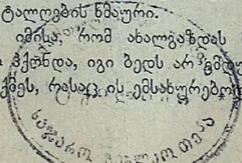 ტალღების ხმაური.
იმისა, რომ ახალგაზდას
ჰქონდა, იგი ბედს არ
ქმეს, რასაც ის ემსახურებოდ
საჯარო